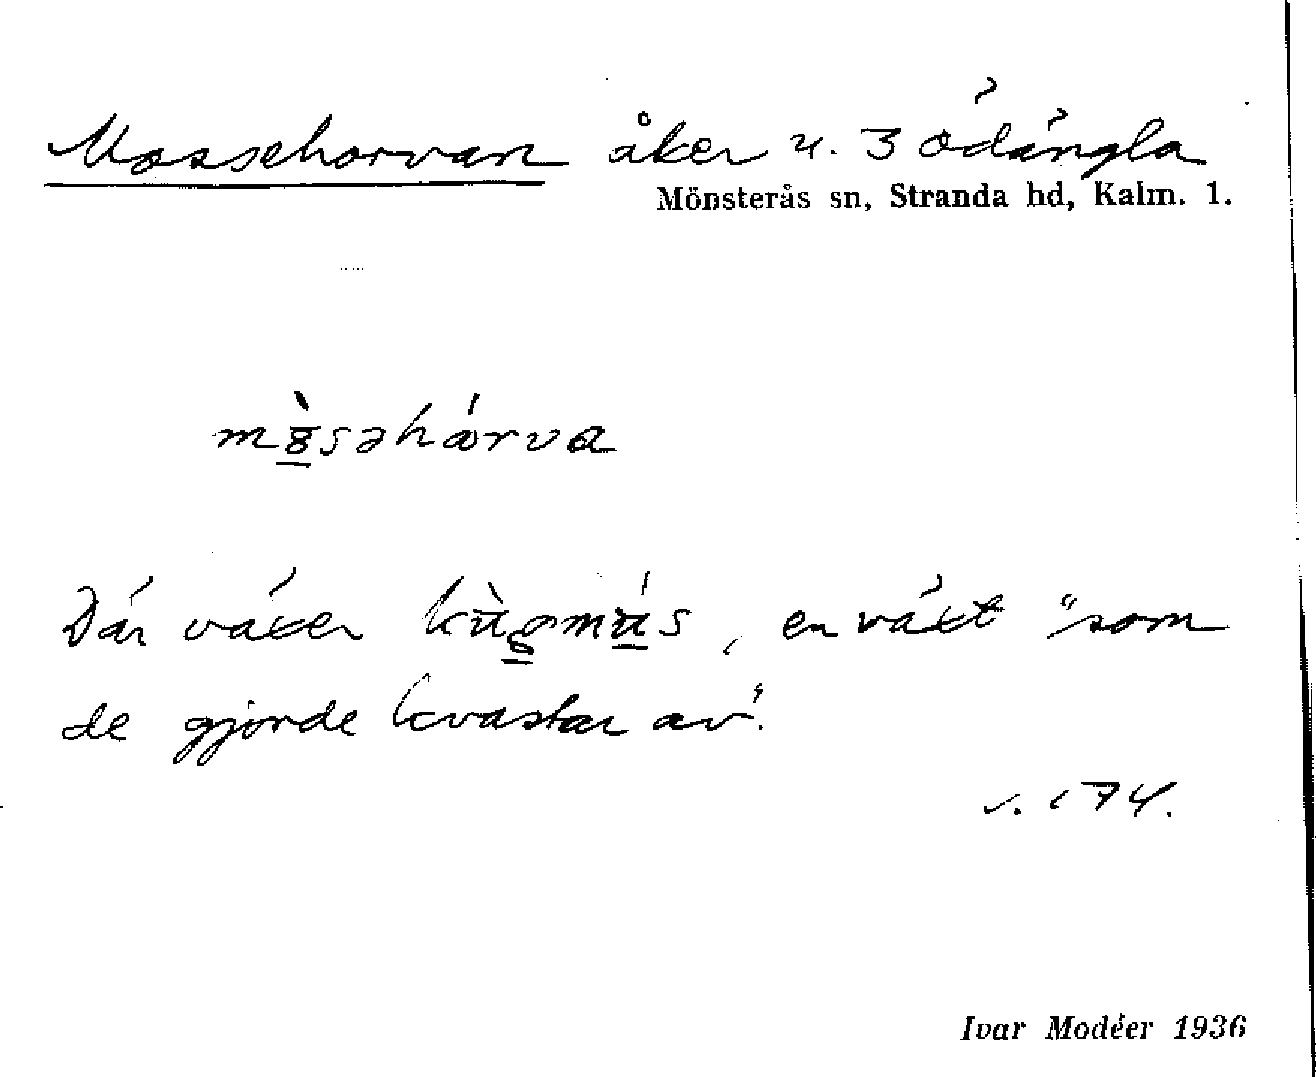 Mossehorvan åker u. 3 Ödängla
Mönsterås sn, Stranda hd, Kalm. l.
Där växer en växt "som
de gjorde kvastar av".
s. 174.
Ivar Modéer 1936